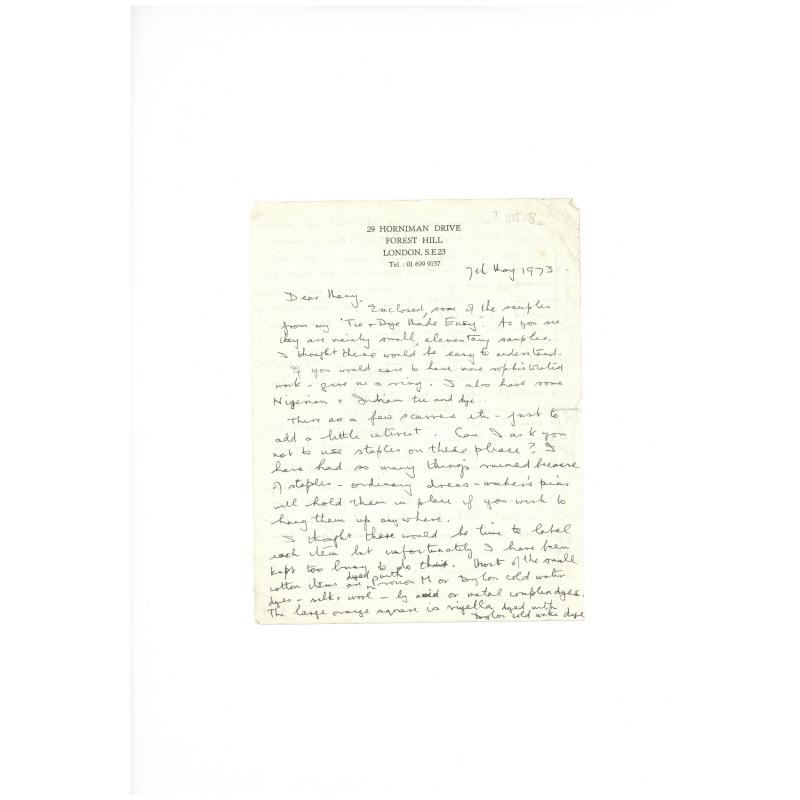 29 HORNIMAN DRIVE
FOREST HILL
LONDON, S.E.23
Tel.: 01 699 9157
7th May 1973
Dear Mary,
Enclosed, some of the samples
from my 'Tie & Dye Made Easy'. As you see
they are mainly small, elementary samples.
I thought these would be easy to understand.
If you would care to have more sophisticated
work - give me a ring. I also have some
Nigerian & Indian tie and dye.
There are a few scarves etc - just to
add a little interest. Can I ask you
not to use staples on these please? I
have had so many things ruined because
of staples - ordinary dress-maker's pins
will hold them in place if you wish to
hang them up anywhere.
I thought there would be time to label
each item but unfortunately I have been
kept too busy to do this. Most of the small
cotton items are dyed with Procion M or Dylon cold water
dyes - silk & wool - by acid or metal complex dyes.
The large orange square is viyella dyed with
Dylon cold water dye